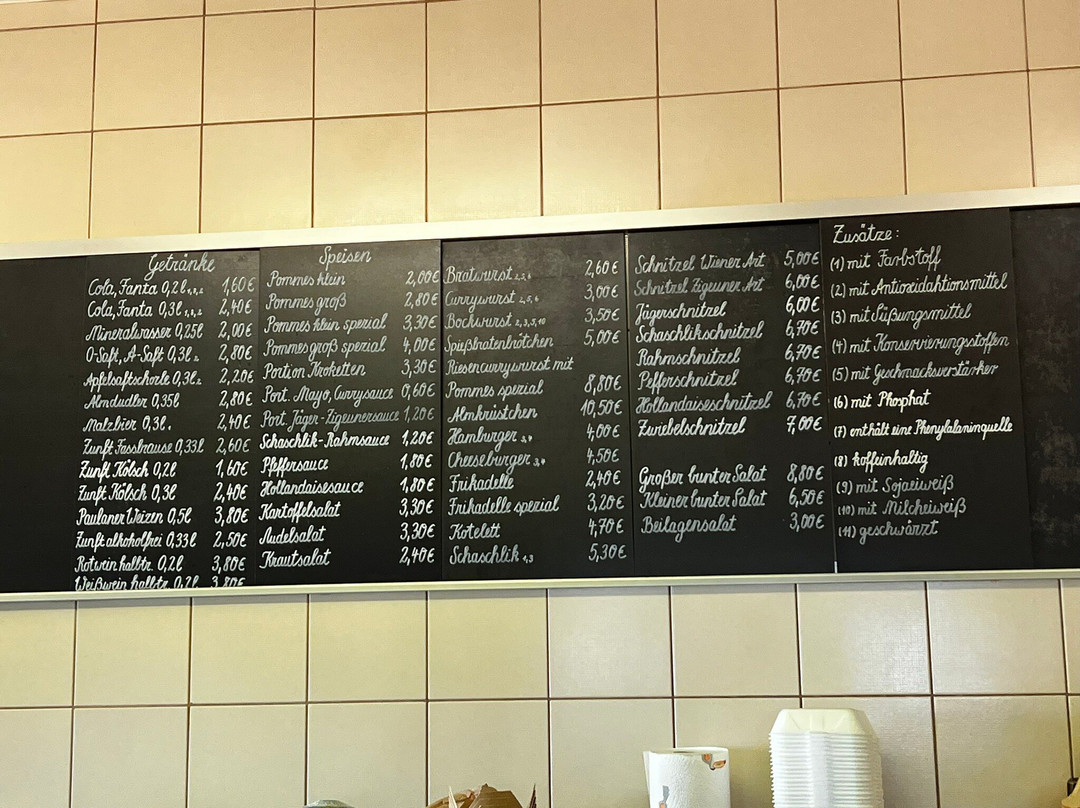 Getränke
Cola, Fanta 0,2l 1,60€
Cola, Fanta 0,3l 2,40€
Mineralwasser 0,25l 2,00€
O-Saft, A-Saft 0,3l 2,80€
Apfelsaftschorle 0,3l 2,20€
Almdudler 0,35l 2,80€
Malzbier 0,3l 2,40€
Zunft Fassbrause 0,33l 2,60€
Zunft Kölsch 0,2l 1,60€
Zunft Kölsch 0,3l 2,40€
Paulaner Weizen 0,5l 3,80€
Zunft alkoholfrei 0,33l 2,50€
Rotwein halbtr. 0,2l 3,80€
Weißwein halbtr. 0,2l 3,80€
Speisen
Pommes klein 2,00€
Pommes groß 2,80€
Pommes klein spezial 3,30€
Pommes groß spezial 4,00€
Portion Kroketten 3,30€
Port. Mayo, Currysauce 0,60€
Port. Jäger-Zigeunersauce 1,20€
Schaschlik-Rahmsauce 1,20€
Pfeffersauce 1,80€
Hollandaisesauce 1,80€
Kartoffelsalat 3,30€
Nudelsalat 3,30€
Krautsalat 2,40€
Bratwurst 2,60€
Currywurst 3,00€
Bockwurst 2,3,5,10 3,50€
Spießbratenbrötchen 5,00€
Riesencurrywurst mit
Pommes spezial 8,80€
Almkrüstchen 10,50€
Hamburger 3,4 4,00€
Cheeseburger 3,4 4,50€
Frikadelle 2,40€
Frikadelle spezial 3,20€
Kotelett 4,70€
Schaschlik 1,3 5,30€
Schnitzel Wiener Art 5,00€
Schnitzel Zigeuner Art 6,00€
Jägerschnitzel 6,00€
Schaschlikschnitzel 6,70€
Rahmschnitzel 6,70€
Pfefferschnitzel 6,70€
Hollandaiseschnitzel 6,70€
Zwiebelschnitzel 7,00€
Großer bunter Salat 8,80€
Kleiner bunter Salat 6,50€
Beilagensalat 3,00€
Zusätze:
(1) mit Farbstoff
(2) mit Antioxidahtionsmittel
(3) mit Süßungsmittel
(4) mit Konservierungsstoffen
(5) mit Geschmacksverstärker
(6) mit Phosphat
(7) enthält eine Phenylalaninquelle
(8) koffeinhaltig
(9) mit Sojaeiweiß
(10) mit Milcheiweiß
(11) geschwärzt